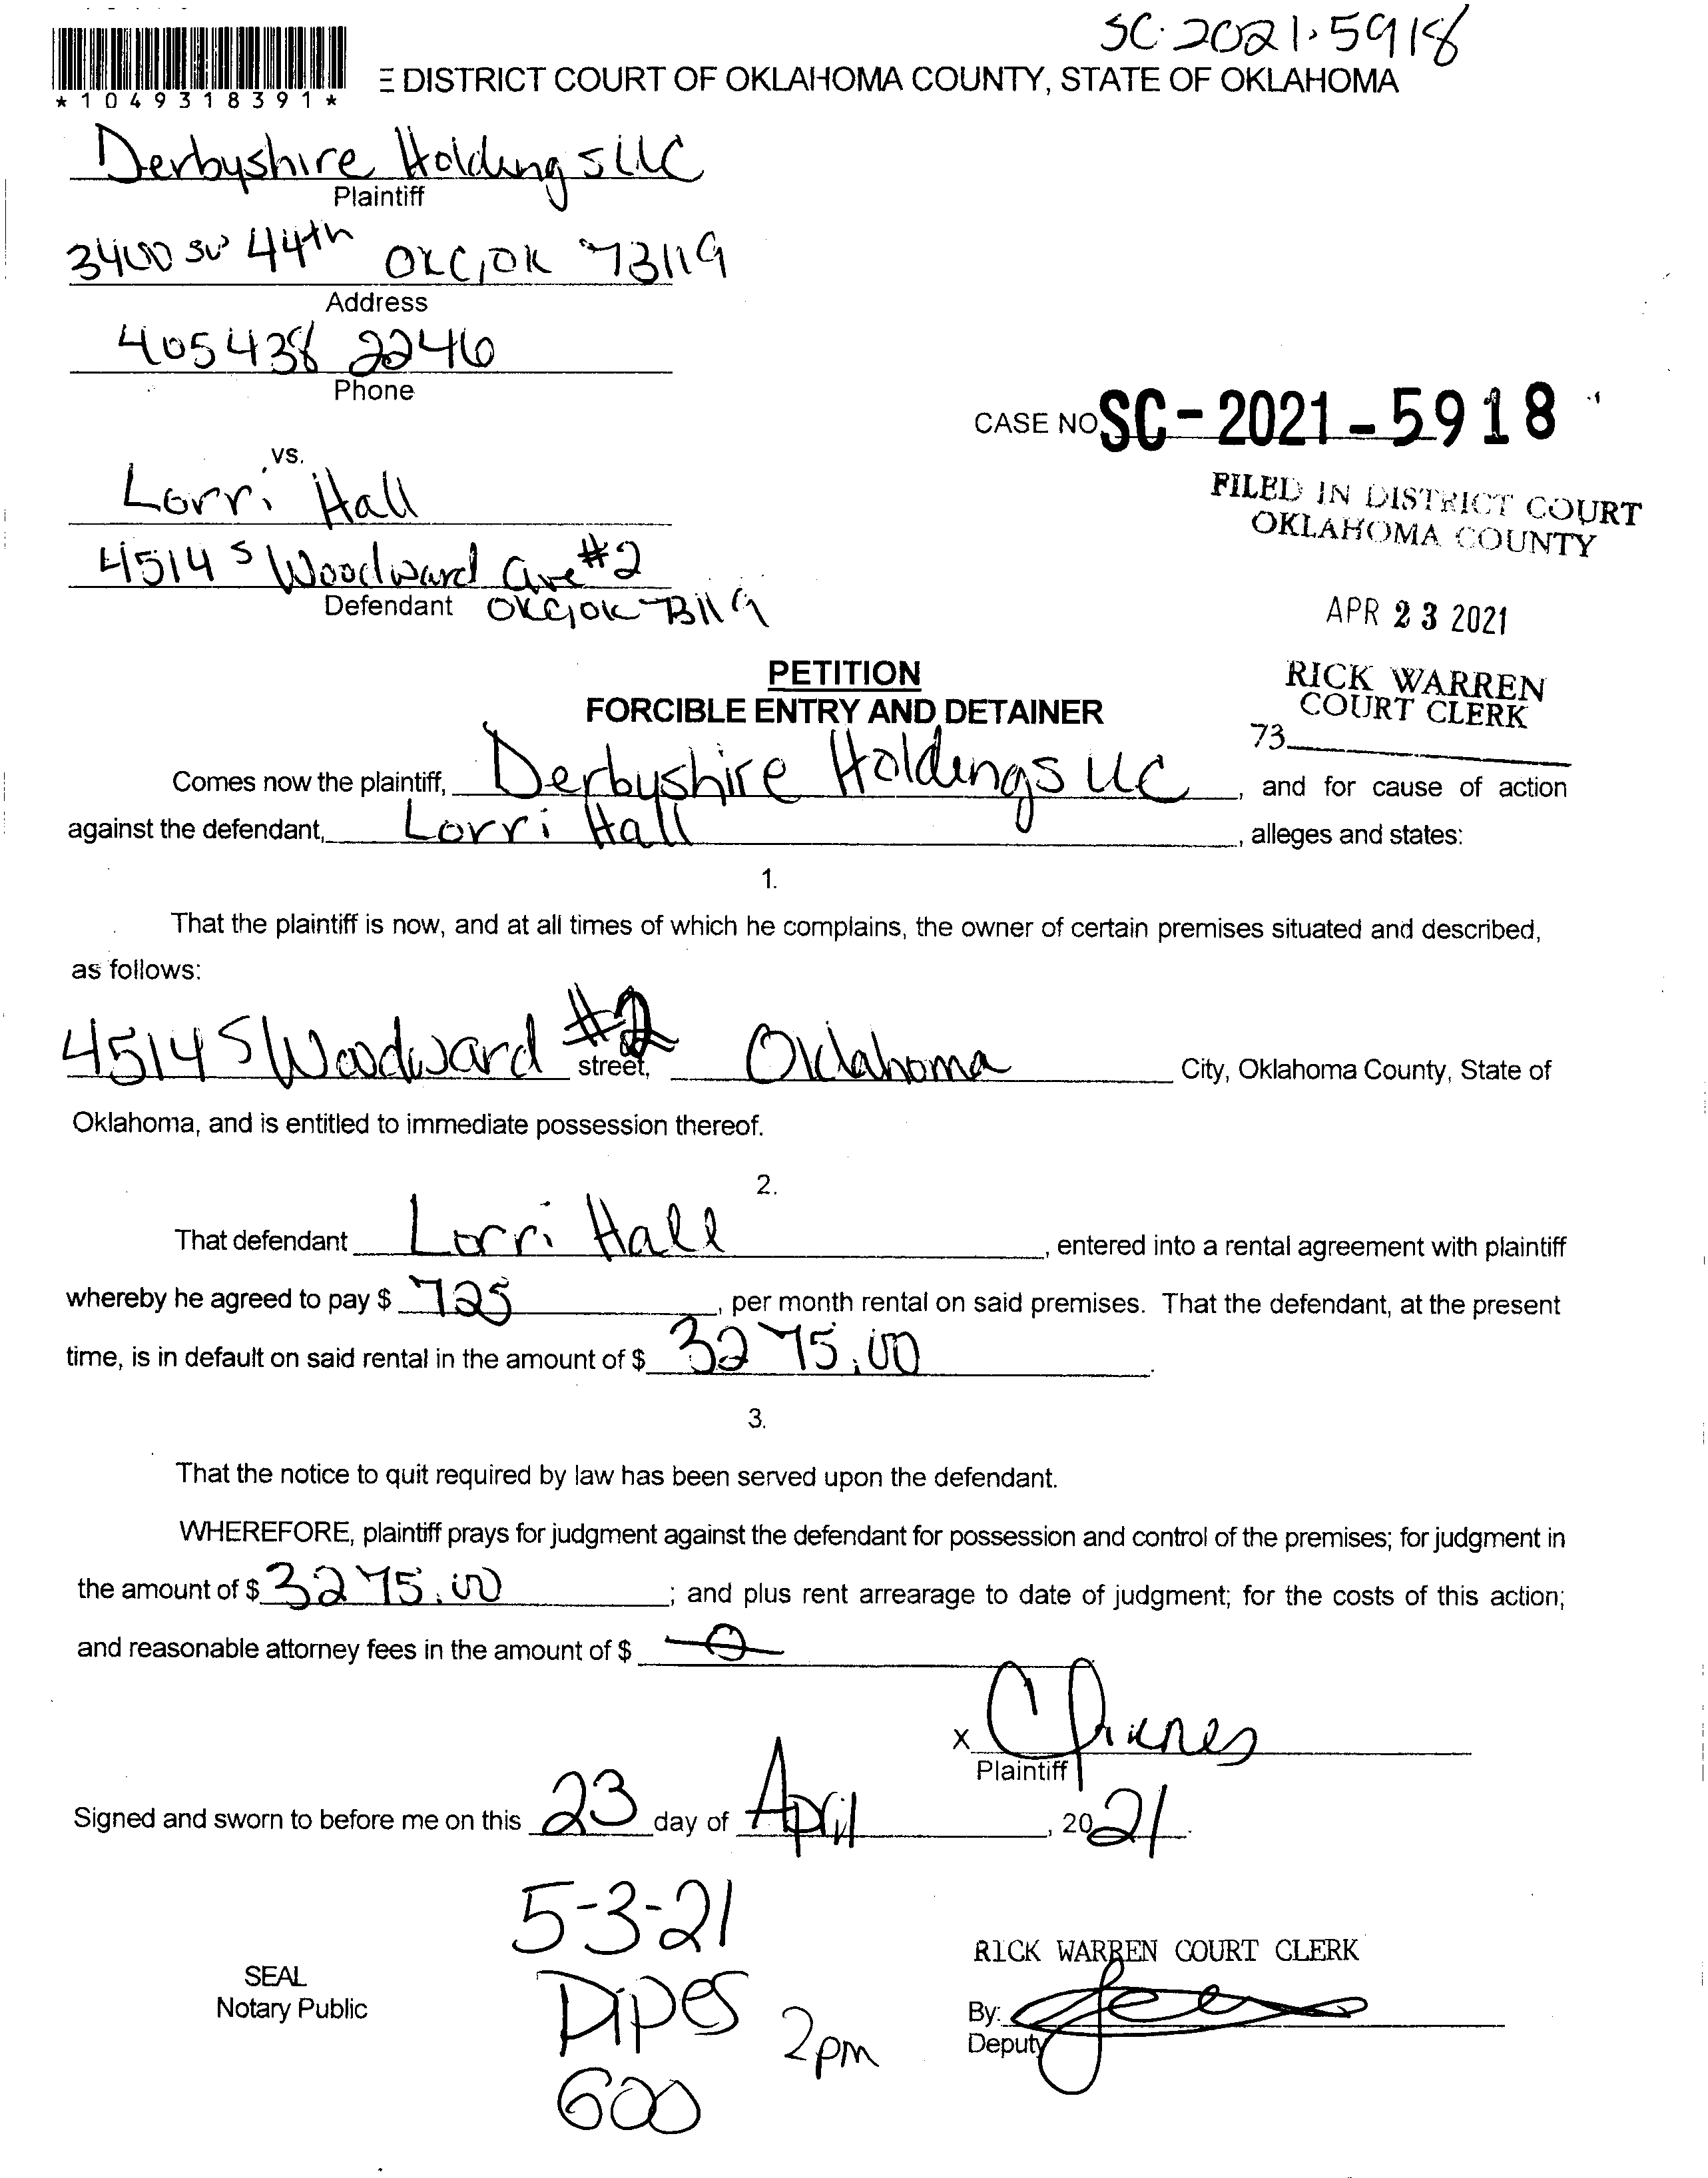 SC-2021-5918
*1049318391*
E DISTRICT COURT OF OKLAHOMA COUNTY, STATE OF OKLAHOMA
Derbyshire Holdings LLC
Plaintiff
3400 SW 44th OKC, OK 73119
Address
405 438 2246
Phone
CASE NO SC-2021-5918
vs.
FILED IN DISTRICT COURT
OKLAHOMA COUNTY
Lorri Hall
4514 S Woodward Ave #2
Defendant OKC, OK 73119
APR 23 2021
PETITION
RICK WARREN
COURT CLERK
FORCIBLE ENTRY AND DETAINER
73
Comes now the plaintiff, Derbyshire Holdings LLC, and for cause of action
against the defendant, Lorri Hall, alleges and states:
1.
That the plaintiff is now, and at all times of which he complains, the owner of certain premises situated and described,
as follows:
4514 S Woodward #2 street, Oklahoma City, Oklahoma County, State of
Oklahoma, and is entitled to immediate possession thereof.
2.
That defendant Lorri Hall, entered into a rental agreement with plaintiff
whereby he agreed to pay $ 725, per month rental on said premises. That the defendant, at the present
time, is in default on said rental in the amount of $ 3275.00.
3.
That the notice to quit required by law has been served upon the defendant.
WHEREFORE, plaintiff prays for judgment against the defendant for possession and control of the premises; for judgment in
the amount of $ 3275.00; and plus rent arrearage to date of judgment; for the costs of this action;
and reasonable attorney fees in the amount of $ 0
X
Plaintiff
Signed and sworn to before me on this 23 day of April, 2021.
5-3-21
RICK WARREN COURT CLERK
SEAL
Notary Public
Dipes 2pm
By:
Deputy
600